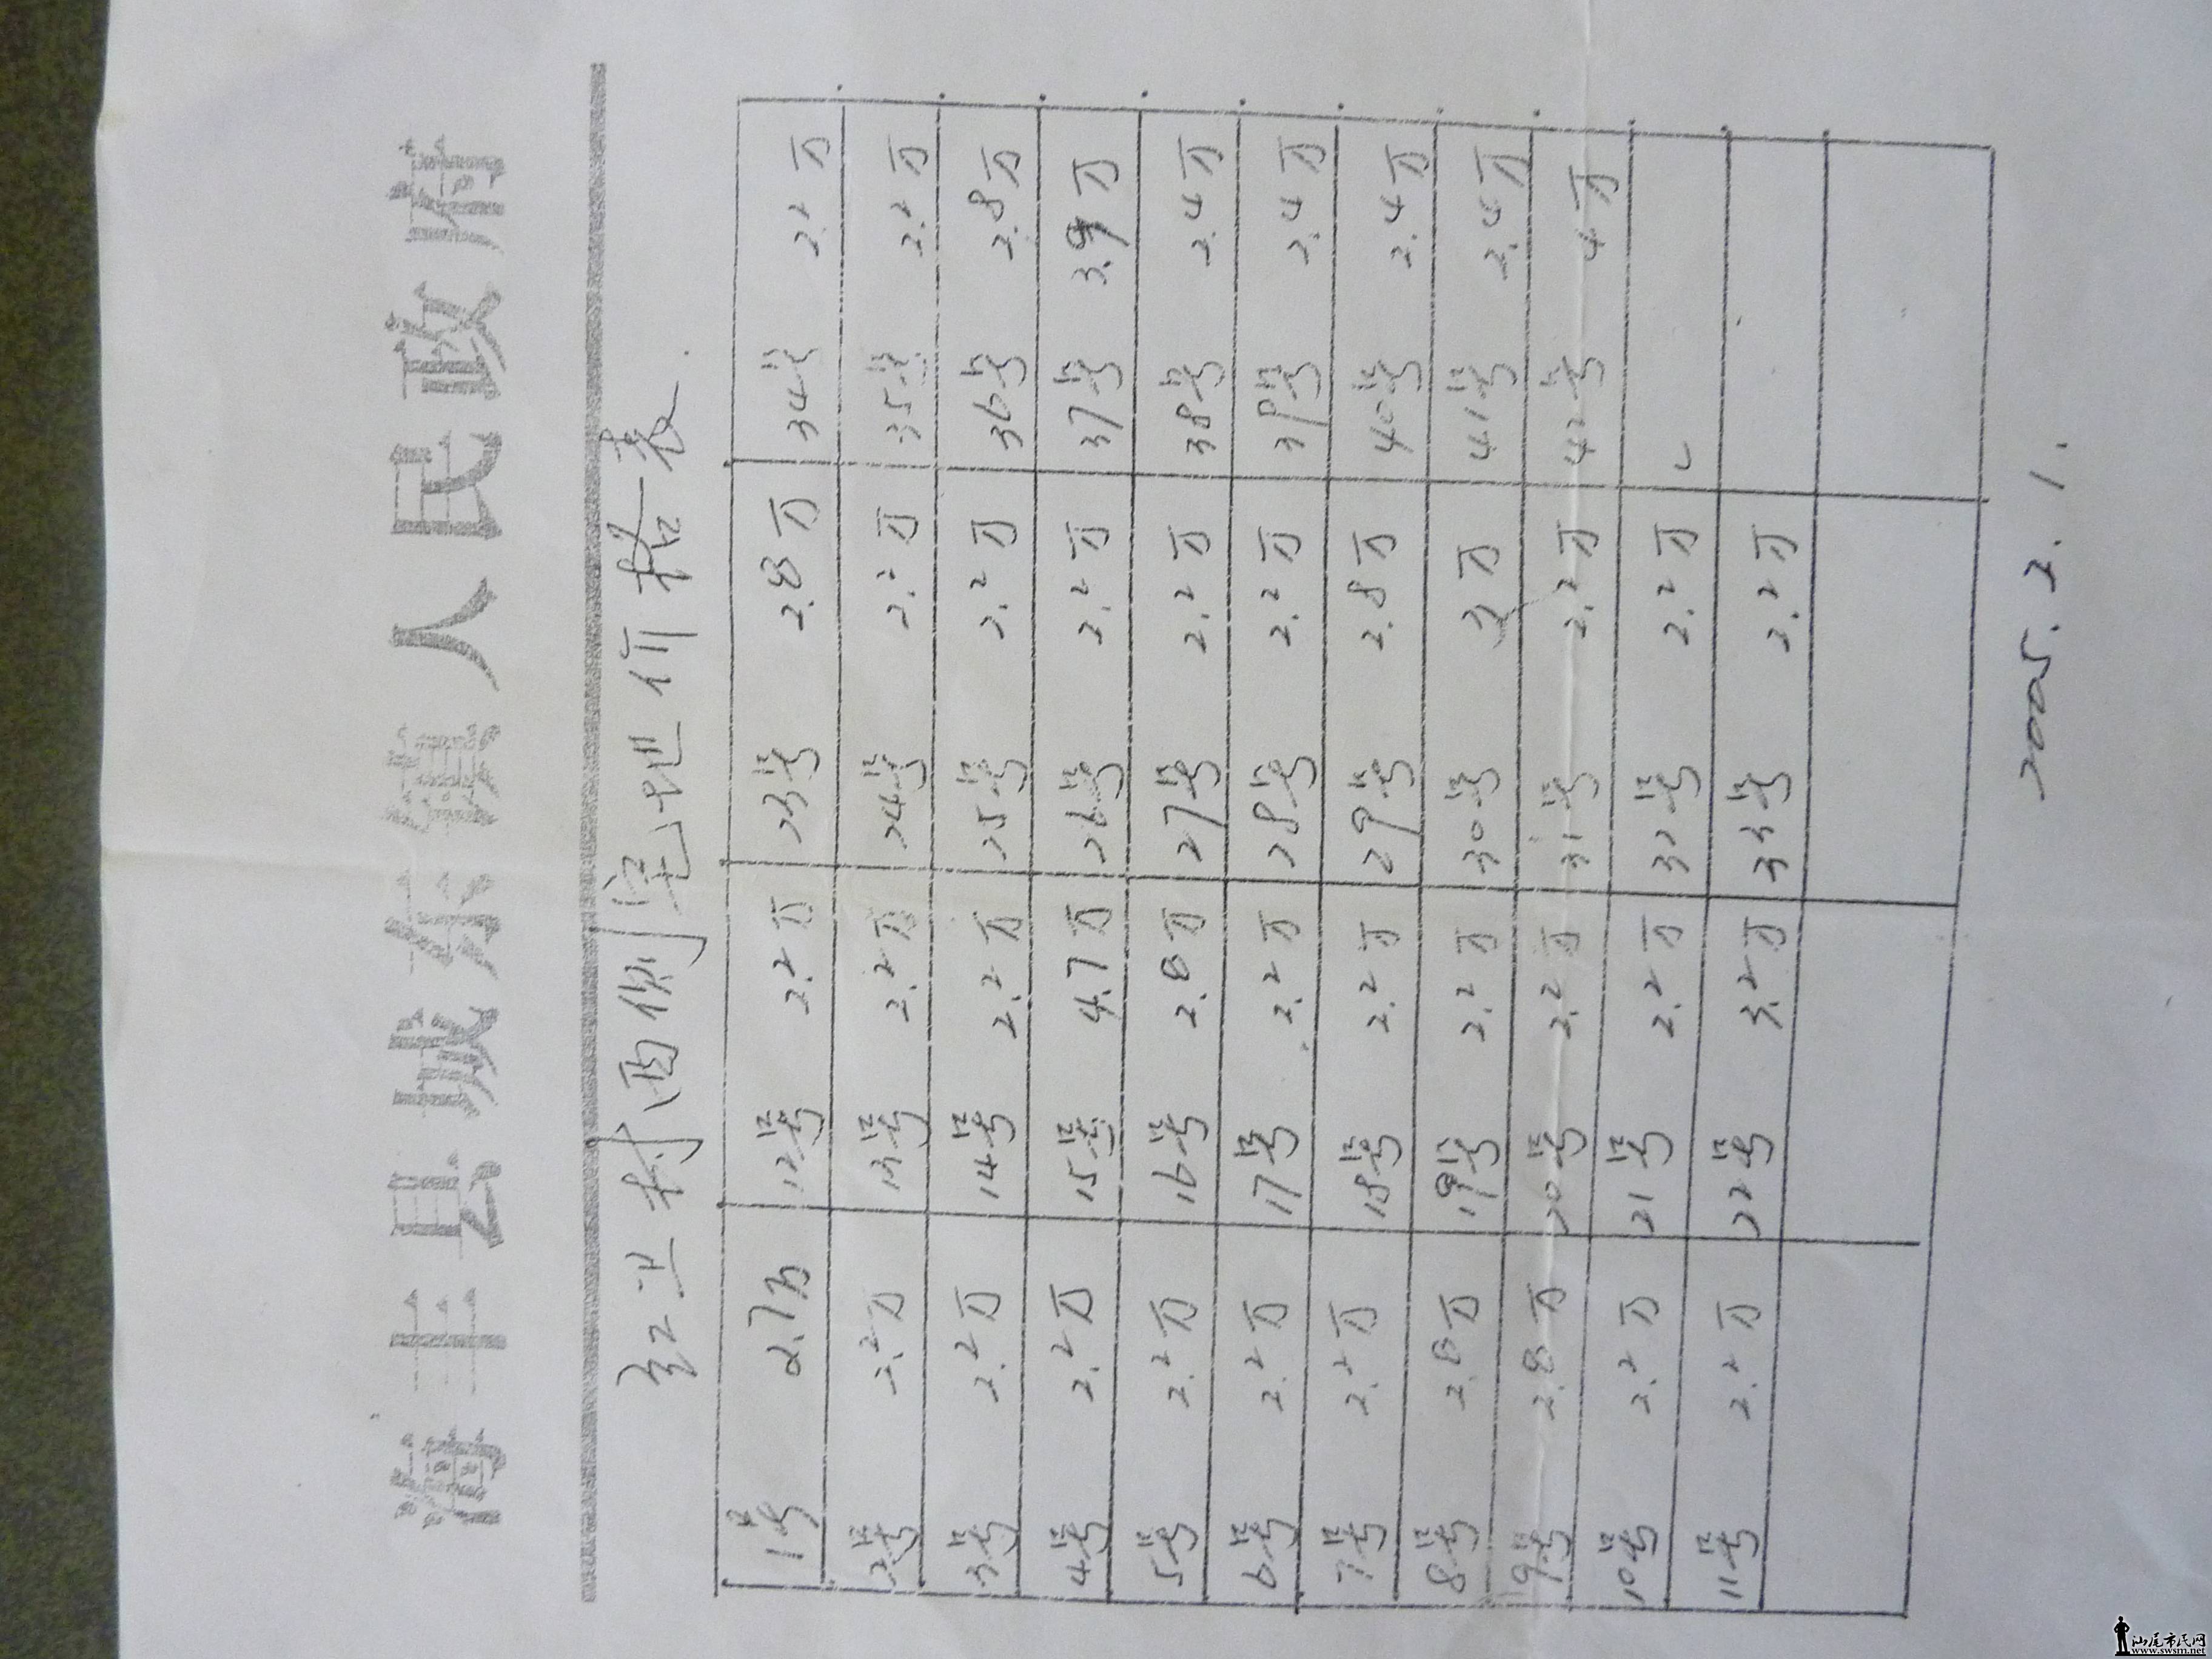 海丰县城东镇人民政府
红卫村西侧厝地价格表
1号 2.7万 12号 2.2万 23号 2.8万 34号 2.2万
2号 2.2万 13号 2.2万 24号 2.2万 35号 2.2万
3号 2.2万 14号 2.2万 25号 2.2万 36号 2.8万
4号 2.2万 15号 4.7万 26号 2.2万 37号 3.9万
5号 2.2万 16号 2.8万 27号 2.2万 38号 2.4万
6号 2.2万 17号 2.2万 28号 2.2万 39号 2.4万
7号 2.2万 18号 2.2万 29号 2.8万 40号 2.4万
8号 2.8万 19号 2.2万 30号 3万 41号 2.4万
9号 2.8万 20号 2.2万 31号 2.2万 42号 4万
10号 2.2万 21号 2.2万 32号 2.2万
11号 2.2万 22号 3.2万 33号 2.2万
2005.2.1.
汕尾市民网
www.swsm.net